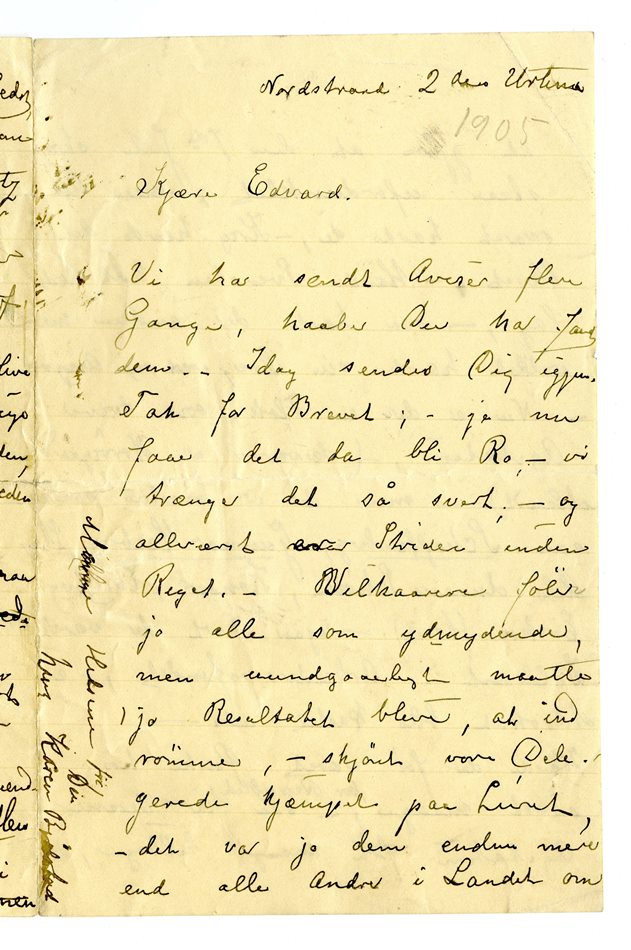 Nordstrand 2 den
1905
Kjære Edvard.
Vi har sendt Aviser flere
Gange, haaber Du har faaet
dem. - Idag sendes Dig igjen.
Tak for Brevet; - ja nu
faar det da bli Ro, - vi
trænger det så svert; - og
allværst var Striden inden
Riget. - Vilkaarene föler
jo alle som ydmydende,
men uundgaaeligt maatte
jo Resultatet bleve, at ind
römme, - skjönt vore Dele-
gerede kjæmpet paa Livet,
- det var jo dem endnu mere
end alle Andre i Landet om
Hilsener fra
Din
Karen